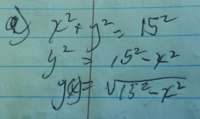 a) x² + y² = 15²
y² = 15² - x²
y(x) = √15² - x²